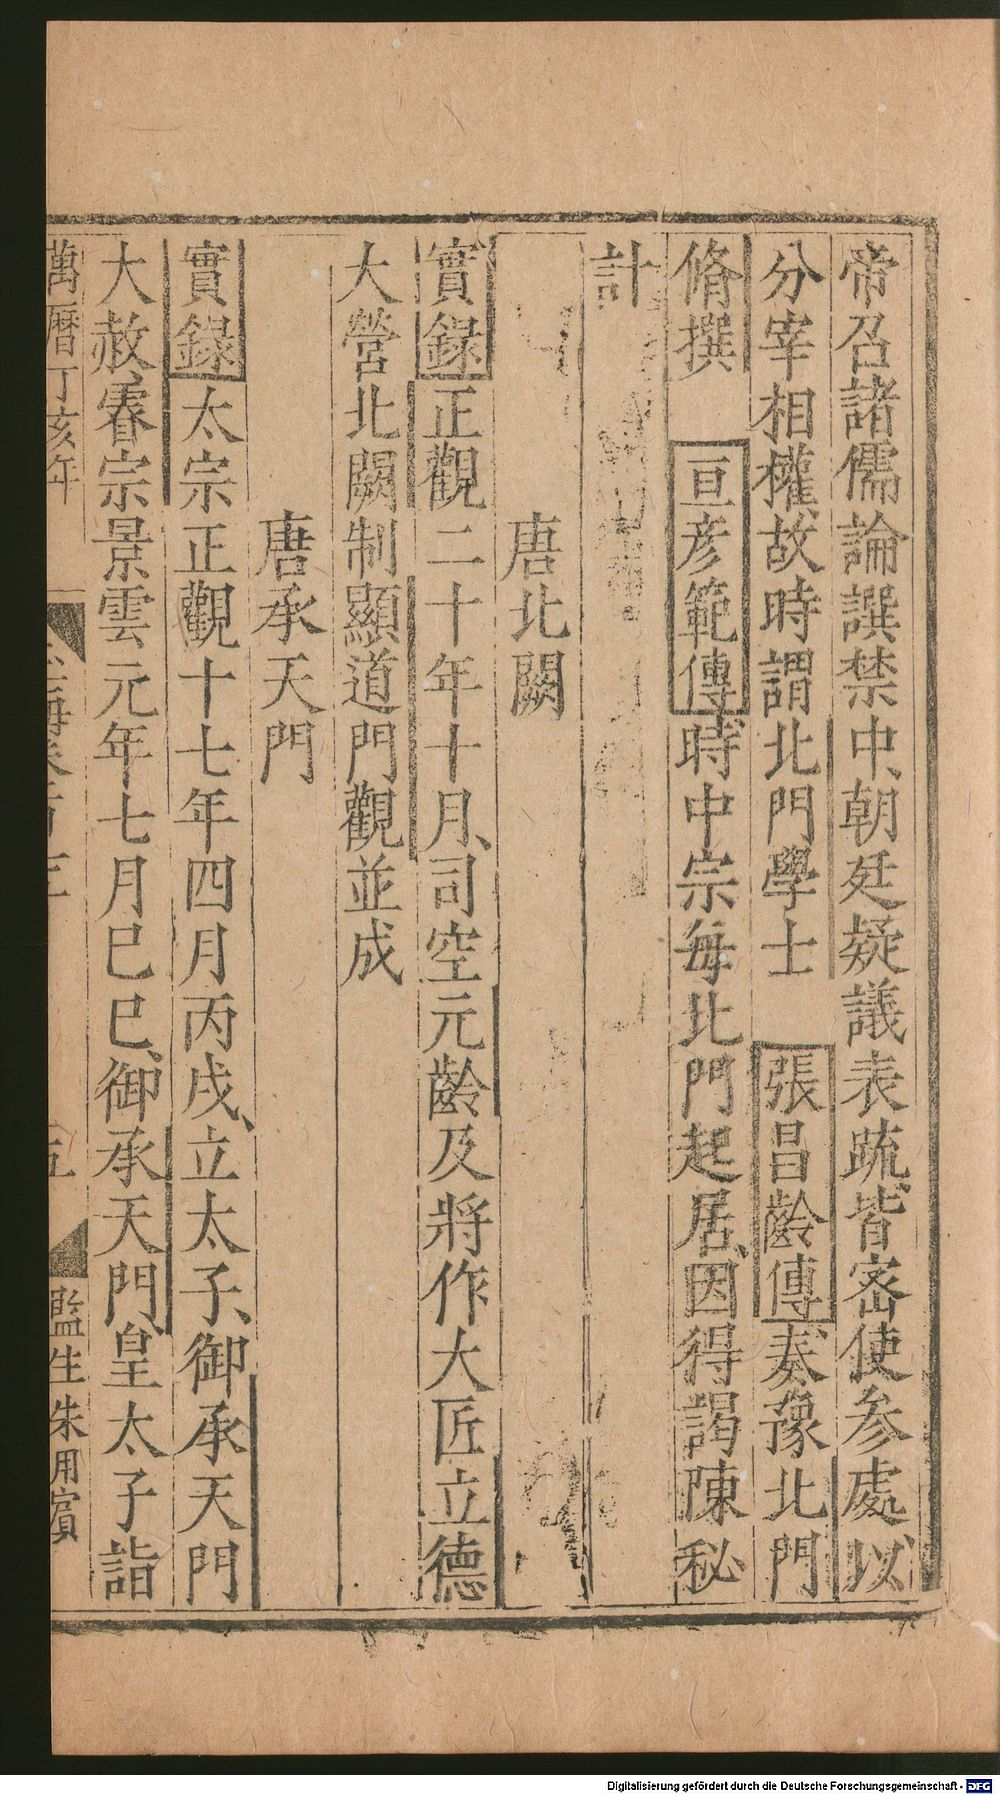 帝召諸儒論譔禁中、朝廷疑議表疏、皆密使参處以
分宰相權、故時謂北門學士　張昌齡傳、奏豫北門
脩撰　亘彦範傳、時中宗每北門起居、因得謁陳秘
計
唐北闕
實録正觀二十年十月、司空元齡及將作大匠立德
大營北闕制顯道門觀並成
唐承天門
實録太宗正觀十七年四月丙戌、立太子、御承天門
大赦、睿宗景雲元年七月巳巳、御承天門、皇太子詣
萬曆丁亥年
海卷百
五
監生朱用賓
Digitalisierung gefördert durch die Deutsche Forschungsgemeinschaft - DFG